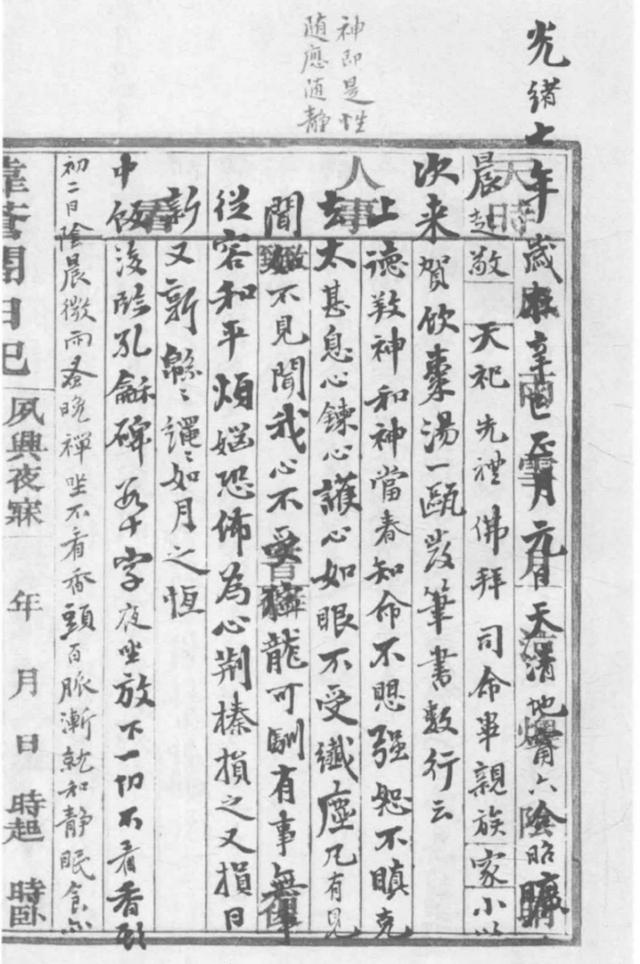 神即是性
随應随静
光緒七年歲在辛巳正月元日天清地甯六陰昭曠
晨起敬天祀先禮佛拜司命畢親族家小以
次来賀飲棗湯一甌發筆書數行云
上德敦神和神當春知命不愠强恕不瞋克
去太甚息心鍊心護心如眼不受纖塵凡有見
聞如不見聞我心不受獰龍可馴有事無事
從容和平煩惱恐怖為心荆榛損之又損日
新又新緜緜繩繩如月之恆
中飯後臨孔龢碑若干字夜坐放下一切不看香頭
初二日陰晨微雨蚤晚禪坐不看香頭百脈漸就和静眠食尒
日記
夙興夜寐 年 月 日 時起 時臥